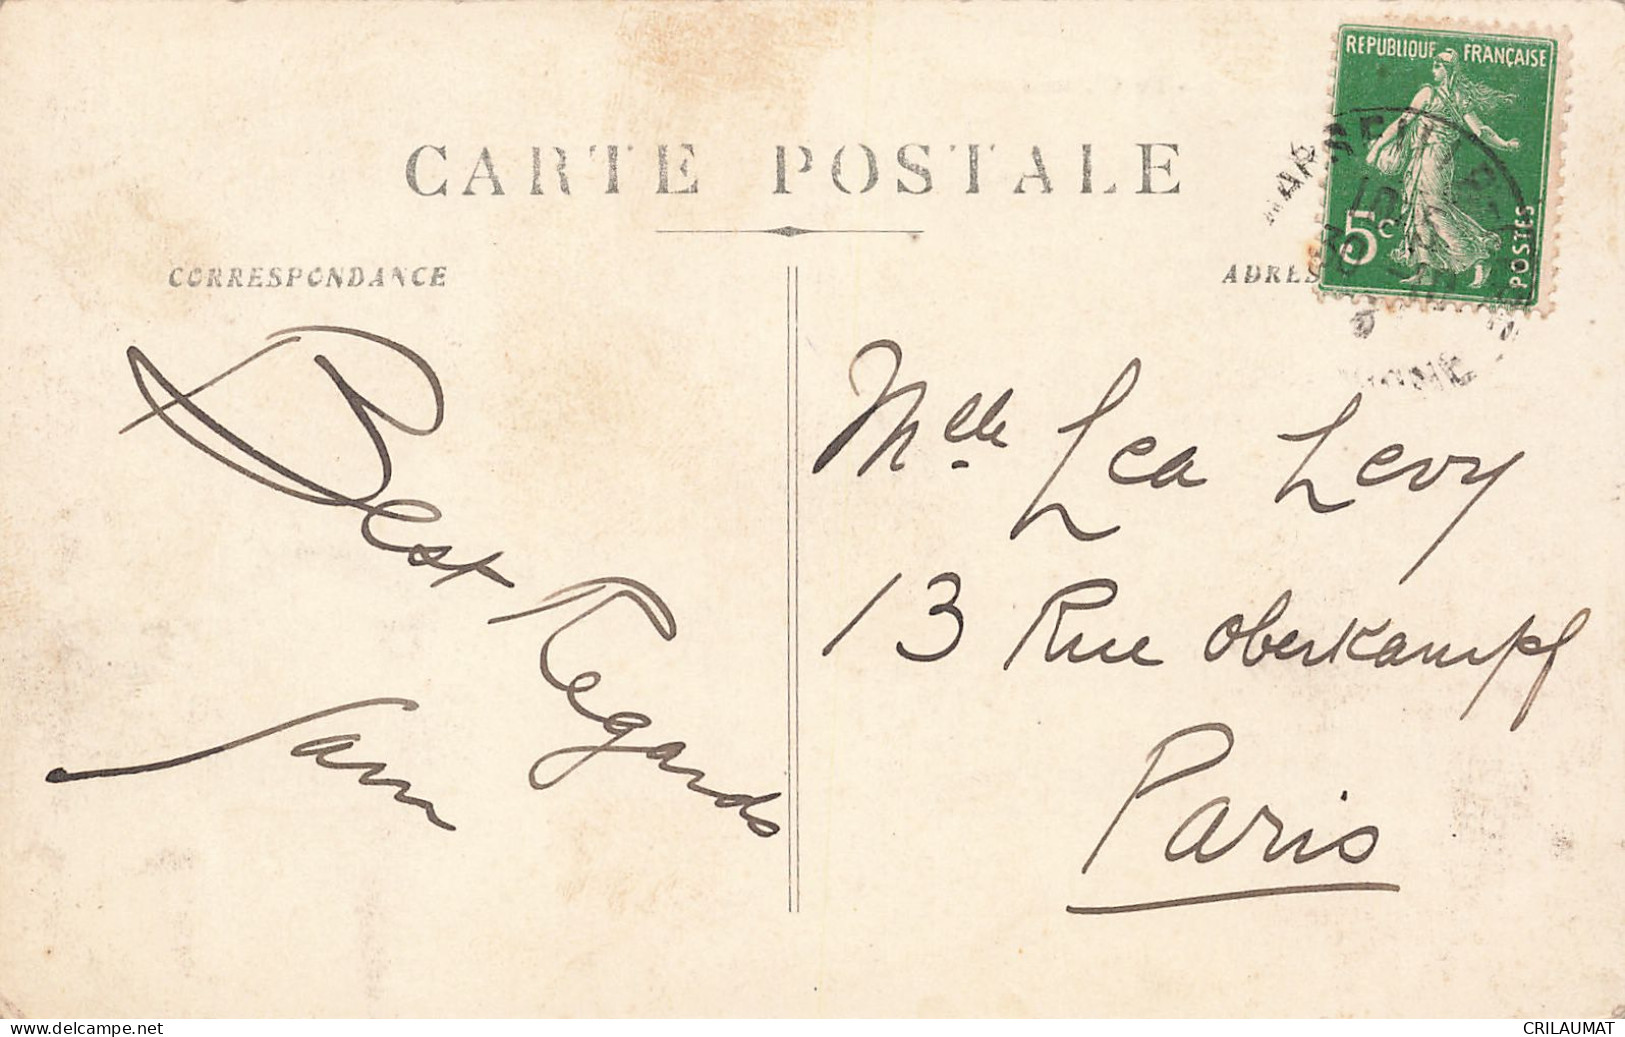 CARTE POSTALE
CORRESPONDANCE
ADRES
REPUBLIQUE FRANÇAISE
5c
POSTES
Best Regards
Sam
Mlle Lea Levy
13 Rue Oberkampf
Paris
www.delcampe.net
CRILAUMAT